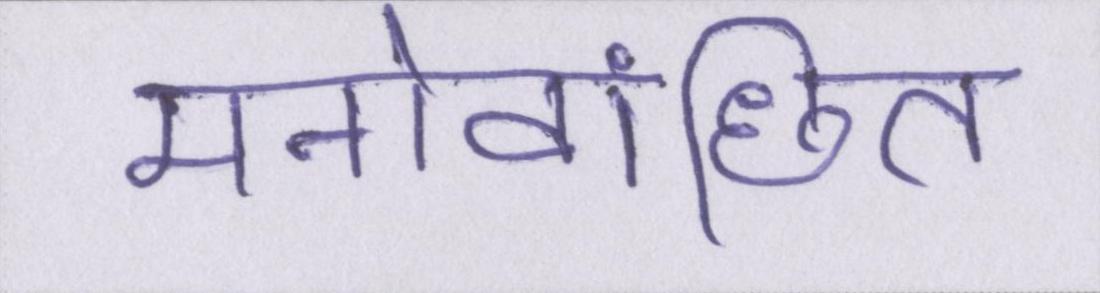 मनोवांछित